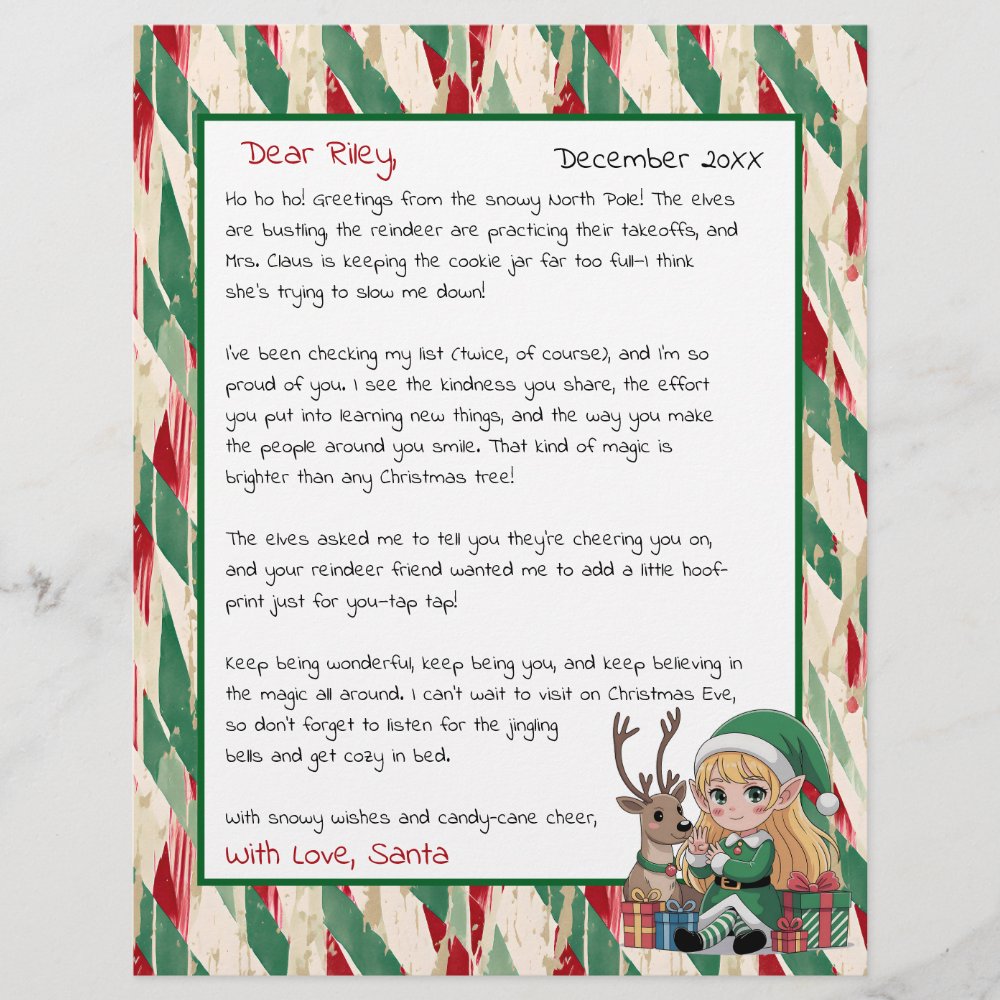 Dear Riley,
December 20XX
Ho ho ho! Greetings from the snowy North Pole! The elves
are bustling, the reindeer are practicing their takeoffs, and
Mrs. Claus is keeping the cookie jar far too full—I think
she's trying to slow me down!
I've been checking my list (twice, of course), and I'm so
proud of you. I see the kindness you share, the effort
you put into learning new things, and the way you make
the people around you smile. That kind of magic is
brighter than any Christmas tree!
The elves asked me to tell you they're cheering you on,
and your reindeer friend wanted me to add a little hoof-
print just for you—tap tap!
Keep being wonderful, keep being you, and keep believing in
the magic all around. I can't wait to visit on Christmas Eve,
so don't forget to listen for the jingling
bells and get cozy in bed.
With snowy wishes and candy-cane cheer,
With Love, Santa